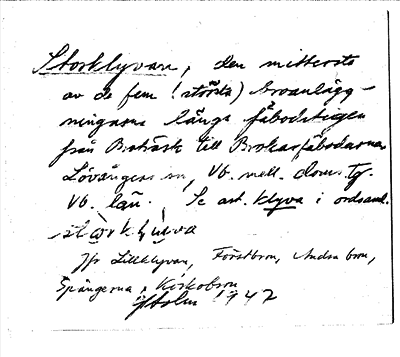 Storklyvan, den mittersta
av de fem (största) broanlägg-
ningarna längs fäbodstigen
från Braträsk till Brokarfäbodarna
Lövångers sn, Vb. mell. doms. tg.
Vb. län. Se art. klyva i ordsaml.
Jfr Lillklyvan, Förstbron, Andra bron,
Spångerna, Körkobron
Holm 1942